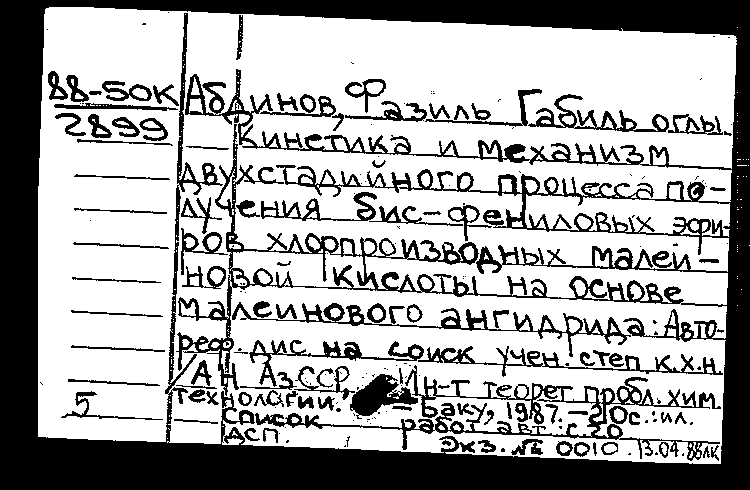 88-50К Абдинов, Фазиль Габиль оглы.
2899 Кинетика и механизм
двухстадийного процесса по-
лучения бис-фениловых эфи-
ров хлорпроизводных малеи-
новой кислоты на основе
малеинового ангидрида: Авто-
реф. дис. на соиск учен. степ. к.х.н.
/АН АзССР, Ин-т теорет пробл. хим.
технологии. – Баку, 1987. – 20с.: ил.
5 список работ авт.: с. 20
ДСП. Экз. № 0010. 13.04.88 лк